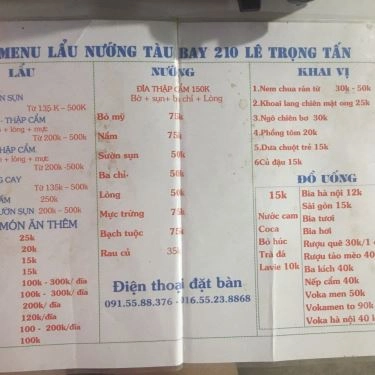 MENU LẨU NƯỚNG TÀU BAY 210 LÊ TRỌNG TẤN
LẨU
ƠN SỤN
TỪ 135 K – 500K
- THẬP CẨM
+ lòng + mực
Từ 200k – 500k
THẬP CẨM.
+ lòng + mực
Từ 200k -500k
G CAY
Từ 135k – 500k
ẤM 250k
ƯỜN SỤN 200k – 500k
MÓN ĂN THÊM
25k
20k
15k
15k
100k - 300k/ đĩa
100k – 300k/ đĩa
200k/ đĩa
120k/ đĩa
100 - 200k/đĩa
100k
NƯỚNG
ĐĨA THẬP CẨM 150K
Bò + sụn+ ba chỉ + Lòng
Bò mỹ 75k
Nầm 75k
Sườn sụn 50k
Ba chỉ 50k
Lòng 50k
Mực trứng 75k
Bạch tuộc 75k
Rau củ 35k
Điện thoại đặt bàn
091.55.88.376 - 016.55.23.8868
KHAI VỊ
1.Nem chua rán từ 30k - 50k
2.Khoai lang chiên mật ong 25k
3.Ngô chiên bơ 30k
4.Phồng tôm 20k
5.Dưa chuột trẻ 15k
6Củ đậu 15k
ĐỒ UỐNG
15k
Nước cam
Coca
Bò húc
Trà đá
Lavie 10k
Bia hà nội 12k
Sài gòn 15k
Bia tươi
Bia hơi
Rượu quê 30k/1
Rượu táo mèo 40
Ba kích 40k
Nếp cẩm 40k
Voka men 50k
Vokamen to 90k
Voka hà nội 40